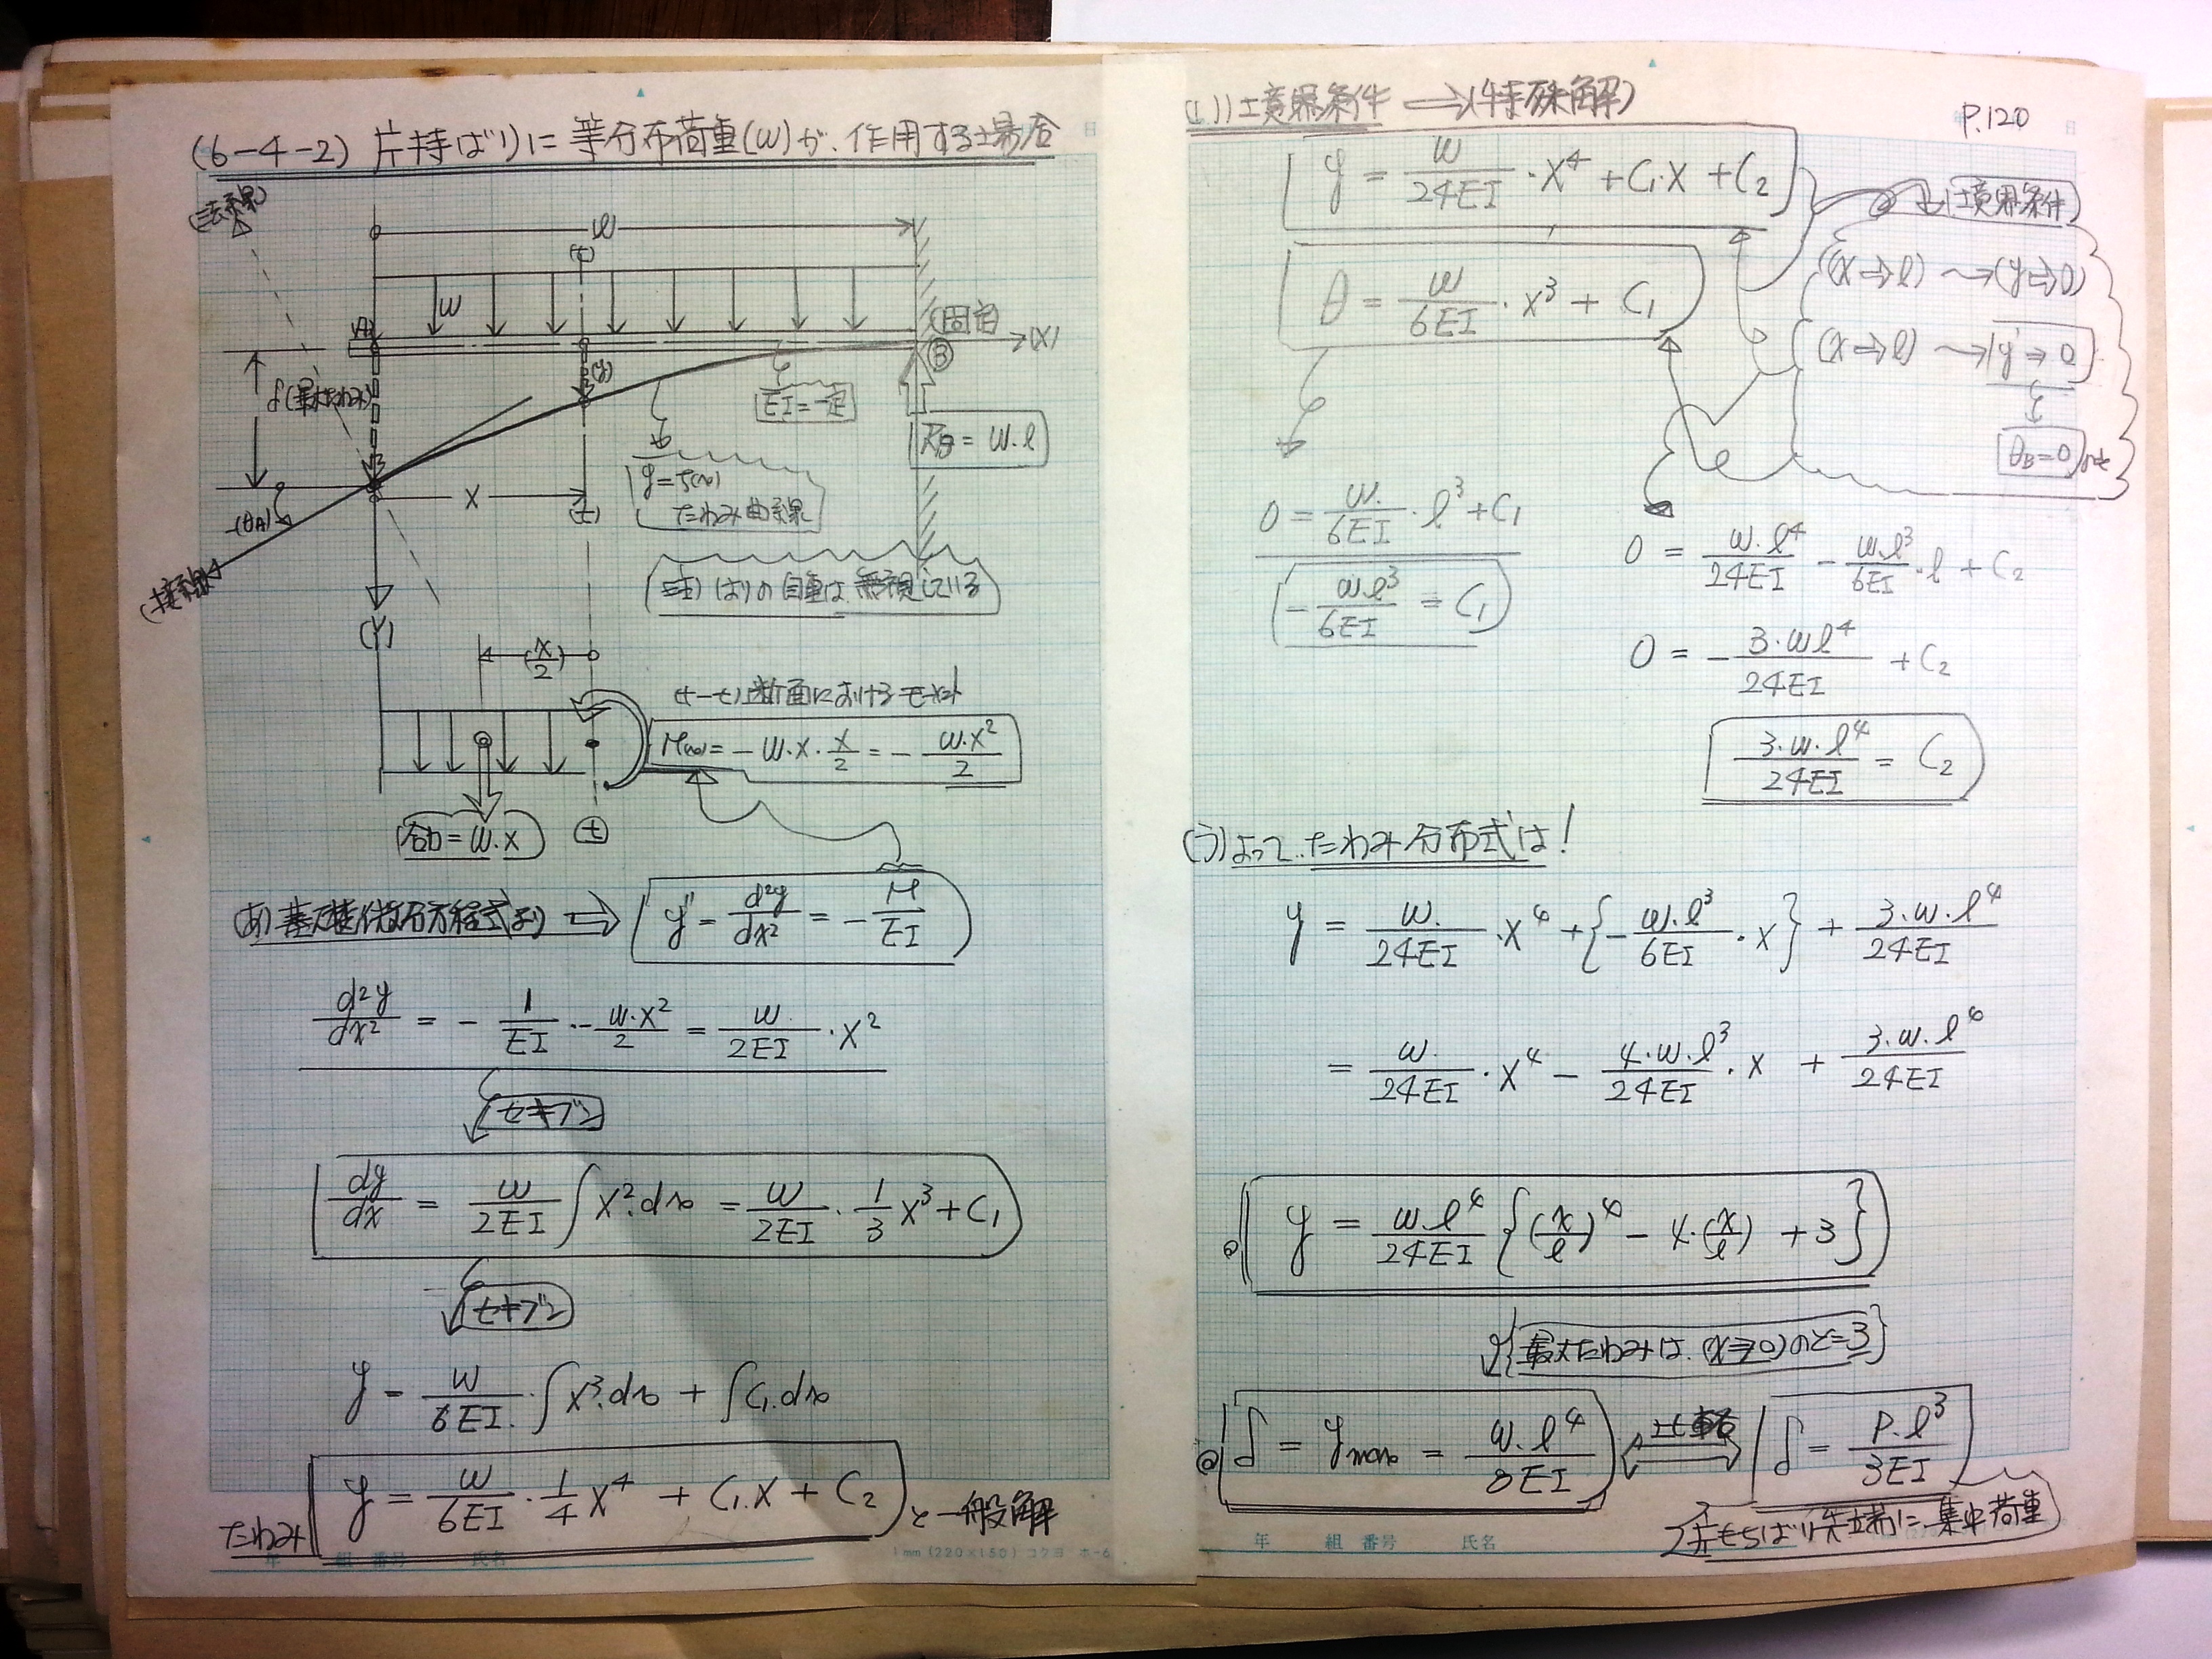 (6-4-2) 片持ばりに等分布荷重(W)が、作用する場合
(法線)
l
(t)
W
(A)
(固定)
(X)
B
δ(最大たわみ)
(y)
EI=一定
R_B = W・l
y=f(x)
たわみ曲線
X
(t)
-(θA)
(接線)
(Y)
注) はりの自重は、無視している
(x/2)
(t-t)断面におけるモーメント
M(x) = -W・x・x/2 = - W・x²/2
合力=W・x
t
(あ) 基礎微分方程式より ⇒ y'' = d²y/dx² = - M/EI
d²y/dx² = - 1/EI ・ - W・x²/2 = W/2EI ・ x²
セキブン
dy/dx = W/2EI ∫x²・dx = W/2EI ・ 1/3 x³ + C₁
セキブン
y = W/6EI ・ ∫x³・dx + ∫C₁・dx
たわみ y = W/6EI ・ 1/4 x⁴ + C₁・x + C₂ と一般解
年 組 番号 氏名
1mm (220×150) コクヨ ホ-6
(い)境界条件 ⇒ (特殊解)
P.120
y = W/24EI ・ x⁴ + C₁・x + C₂
(境界条件)
θ = W/6EI ・ x³ + C₁
(x⇒l) → (y⇒0)
(x⇒l) → y'⇒0
θB=0
0 = W/6EI ・ l³ + C₁
- W・l³/6EI = C₁
0 = W・l⁴/24EI - W・l³/6EI ・ l + C₂
0 = - 3・Wl⁴/24EI + C₂
3・W・l⁴/24EI = C₂
(う)よって、たわみ分布式は!
y = W/24EI ・ x⁴ + {- W・l³/6EI ・ x} + 3・W・l⁴/24EI
= W/24EI ・ x⁴ - 4・W・l³/24EI ・ x + 3・W・l⁴/24EI
y = W・l⁴/24EI {(x/l)⁴ - 4・(x/l) + 3}
最大たわみは、(x⇒0)のとき
δ = ymax = W・l⁴/8EI ⇔ 比較 δ = P・l³/3EI
片もちばり先端に集中荷重
年 組 番号 氏名